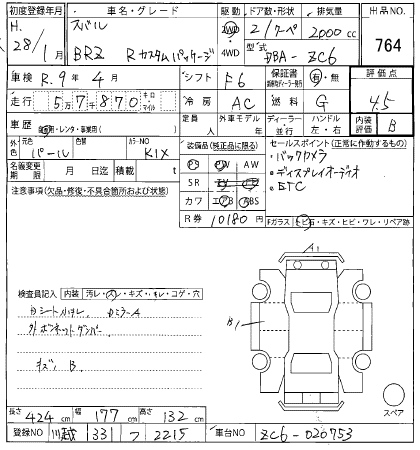 初度登録年月 車名・グレード 駆動 ドア数・形状 排気量 出品NO.
H. 28/1月 スバル 2WD 2/クーペ 2000cc 764
BRZ R カスタムパッケージ 4WD 型式 DBA-ZC6
車検 R. 9年 4月 シフト F6 保証書 有・無 評価点
走行 57870 キロ・マイル 冷房 AC 燃料 G 4.5
車歴 自家用・レンタ・事業用( ) 定員 人 外車モデル 年 ディーラー・並行 ハンドル 左・右 内装評価 B
外色 元色 パール 色替 カラーNO K1X 装備品(純正品に限る) セールスポイント(正常に動作するもの)
名義変更期限 月 日迄 積載 t PS PW AW ・バックカメラ
注意事項(欠品・修復・不具合箇所および状態) SR ・ディスプレイオーディオ
カワ ABS ・ETC
R券 10180円 Fガラス ヒビ石・キズ・ヒビ・ワレ・リペア跡
A1
検査員記入 内装 汚レ・スレ・キズ・ ・コゲ・穴
B1
外ボンネットダンパー
キズ B
スペア
長さ 424cm 幅 177cm 高さ 132cm
登録NO 川越 331 フ 2215 車台NO ZC6-020753